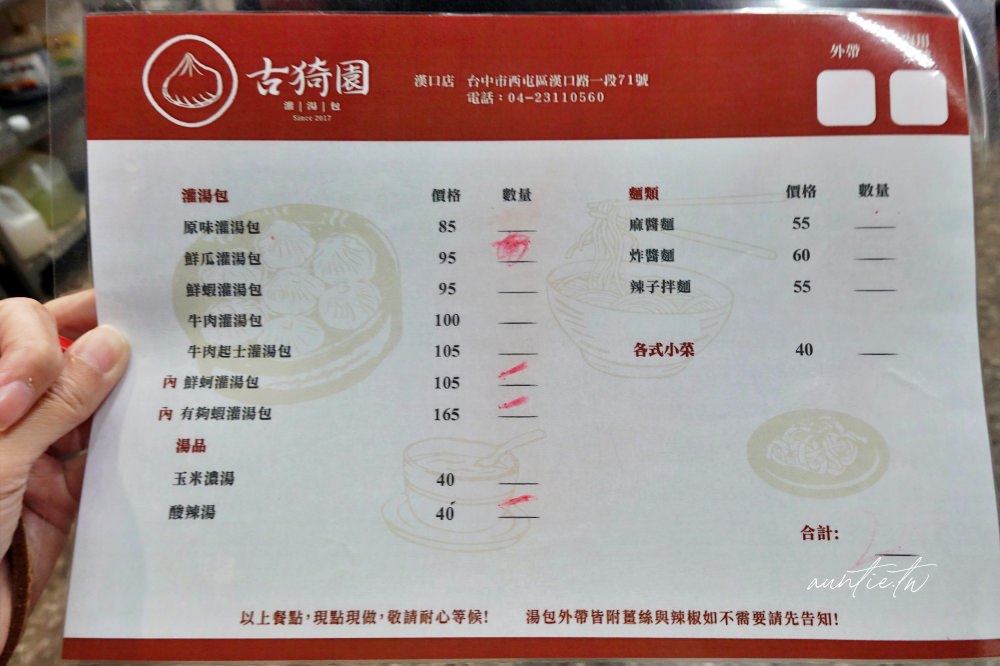 古猗園
灌|湯|包
Since 2017
漢口店 台中市西屯區漢口路一段71號
電話：04-23110560
外帶
灌湯包 價格 數量
原味灌湯包 85
鮮瓜灌湯包 95
鮮蝦灌湯包 95
牛肉灌湯包 100
牛肉起士灌湯包 105
內 鮮蚵灌湯包 105
內 有夠蝦灌湯包 165
湯品
玉米濃湯 40
酸辣湯 40
麵類 價格 數量
麻醬麵 55
炸醬麵 60
辣子拌麵 55
各式小菜 40
合計:
auntie.tw
以上餐點，現點現做，敬請耐心等候!
湯包外帶皆附薑絲與辣椒如不需要請先告知!